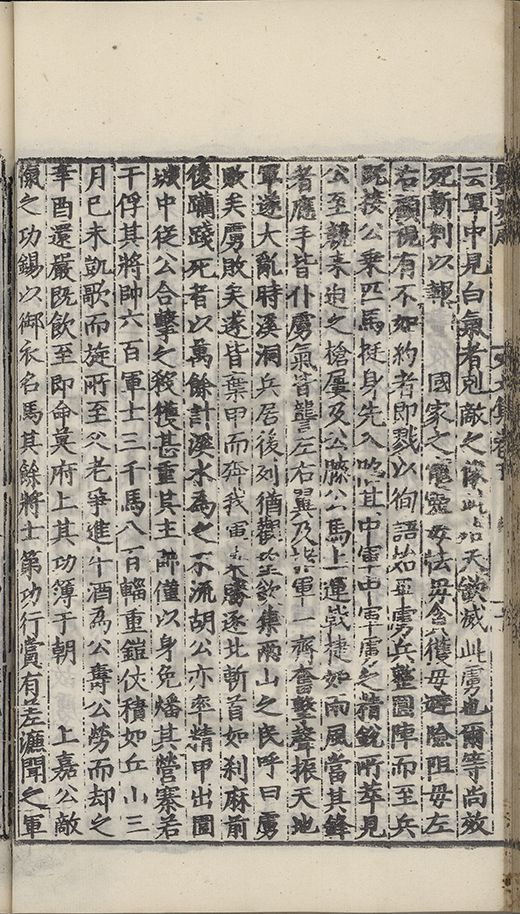 云軍中見白氣者剋敵之像此始天欲滅此虜也爾等尚效
死斬刺以報 國家之寵靈毋怯毋貪獲毋避險阻毋左
右顧視有不如約者即戮以徇語始畢虜兵整圓陣而至兵
既接公乗匹馬挺身先入其中軍中軍虜之精銳所萃見
公至競来迫之槍屢及公膝公馬上運戟捷如雨風當其鋒
者應手皆仆虜氣皆讋左右翼及軍一齊奮擊聲振天地
軍遂大亂時溪洞兵居後列猶觀望欲集兩山之民呼曰虜
敗矣虜敗矣遂皆棄甲而奔我軍乗勝逐北斬首如刹麻前
後躪踐死者以萬餘計溪水為之不流胡公亦率精甲出圍
城中從公合擊之殺獲甚重其主帥僅以身免燔其營寨若
干俘其將帥六百軍士三千馬八百輜重鎧仗積如丘山三
月己未凱歌而旋所至父老爭進牛酒為公壽公勞而却之
辛酉還嚴既飲至即命莫府上其功簿于朝 上嘉公敵
愾之功錫以御衣名馬其餘將士第功行賞有差濂聞之軍